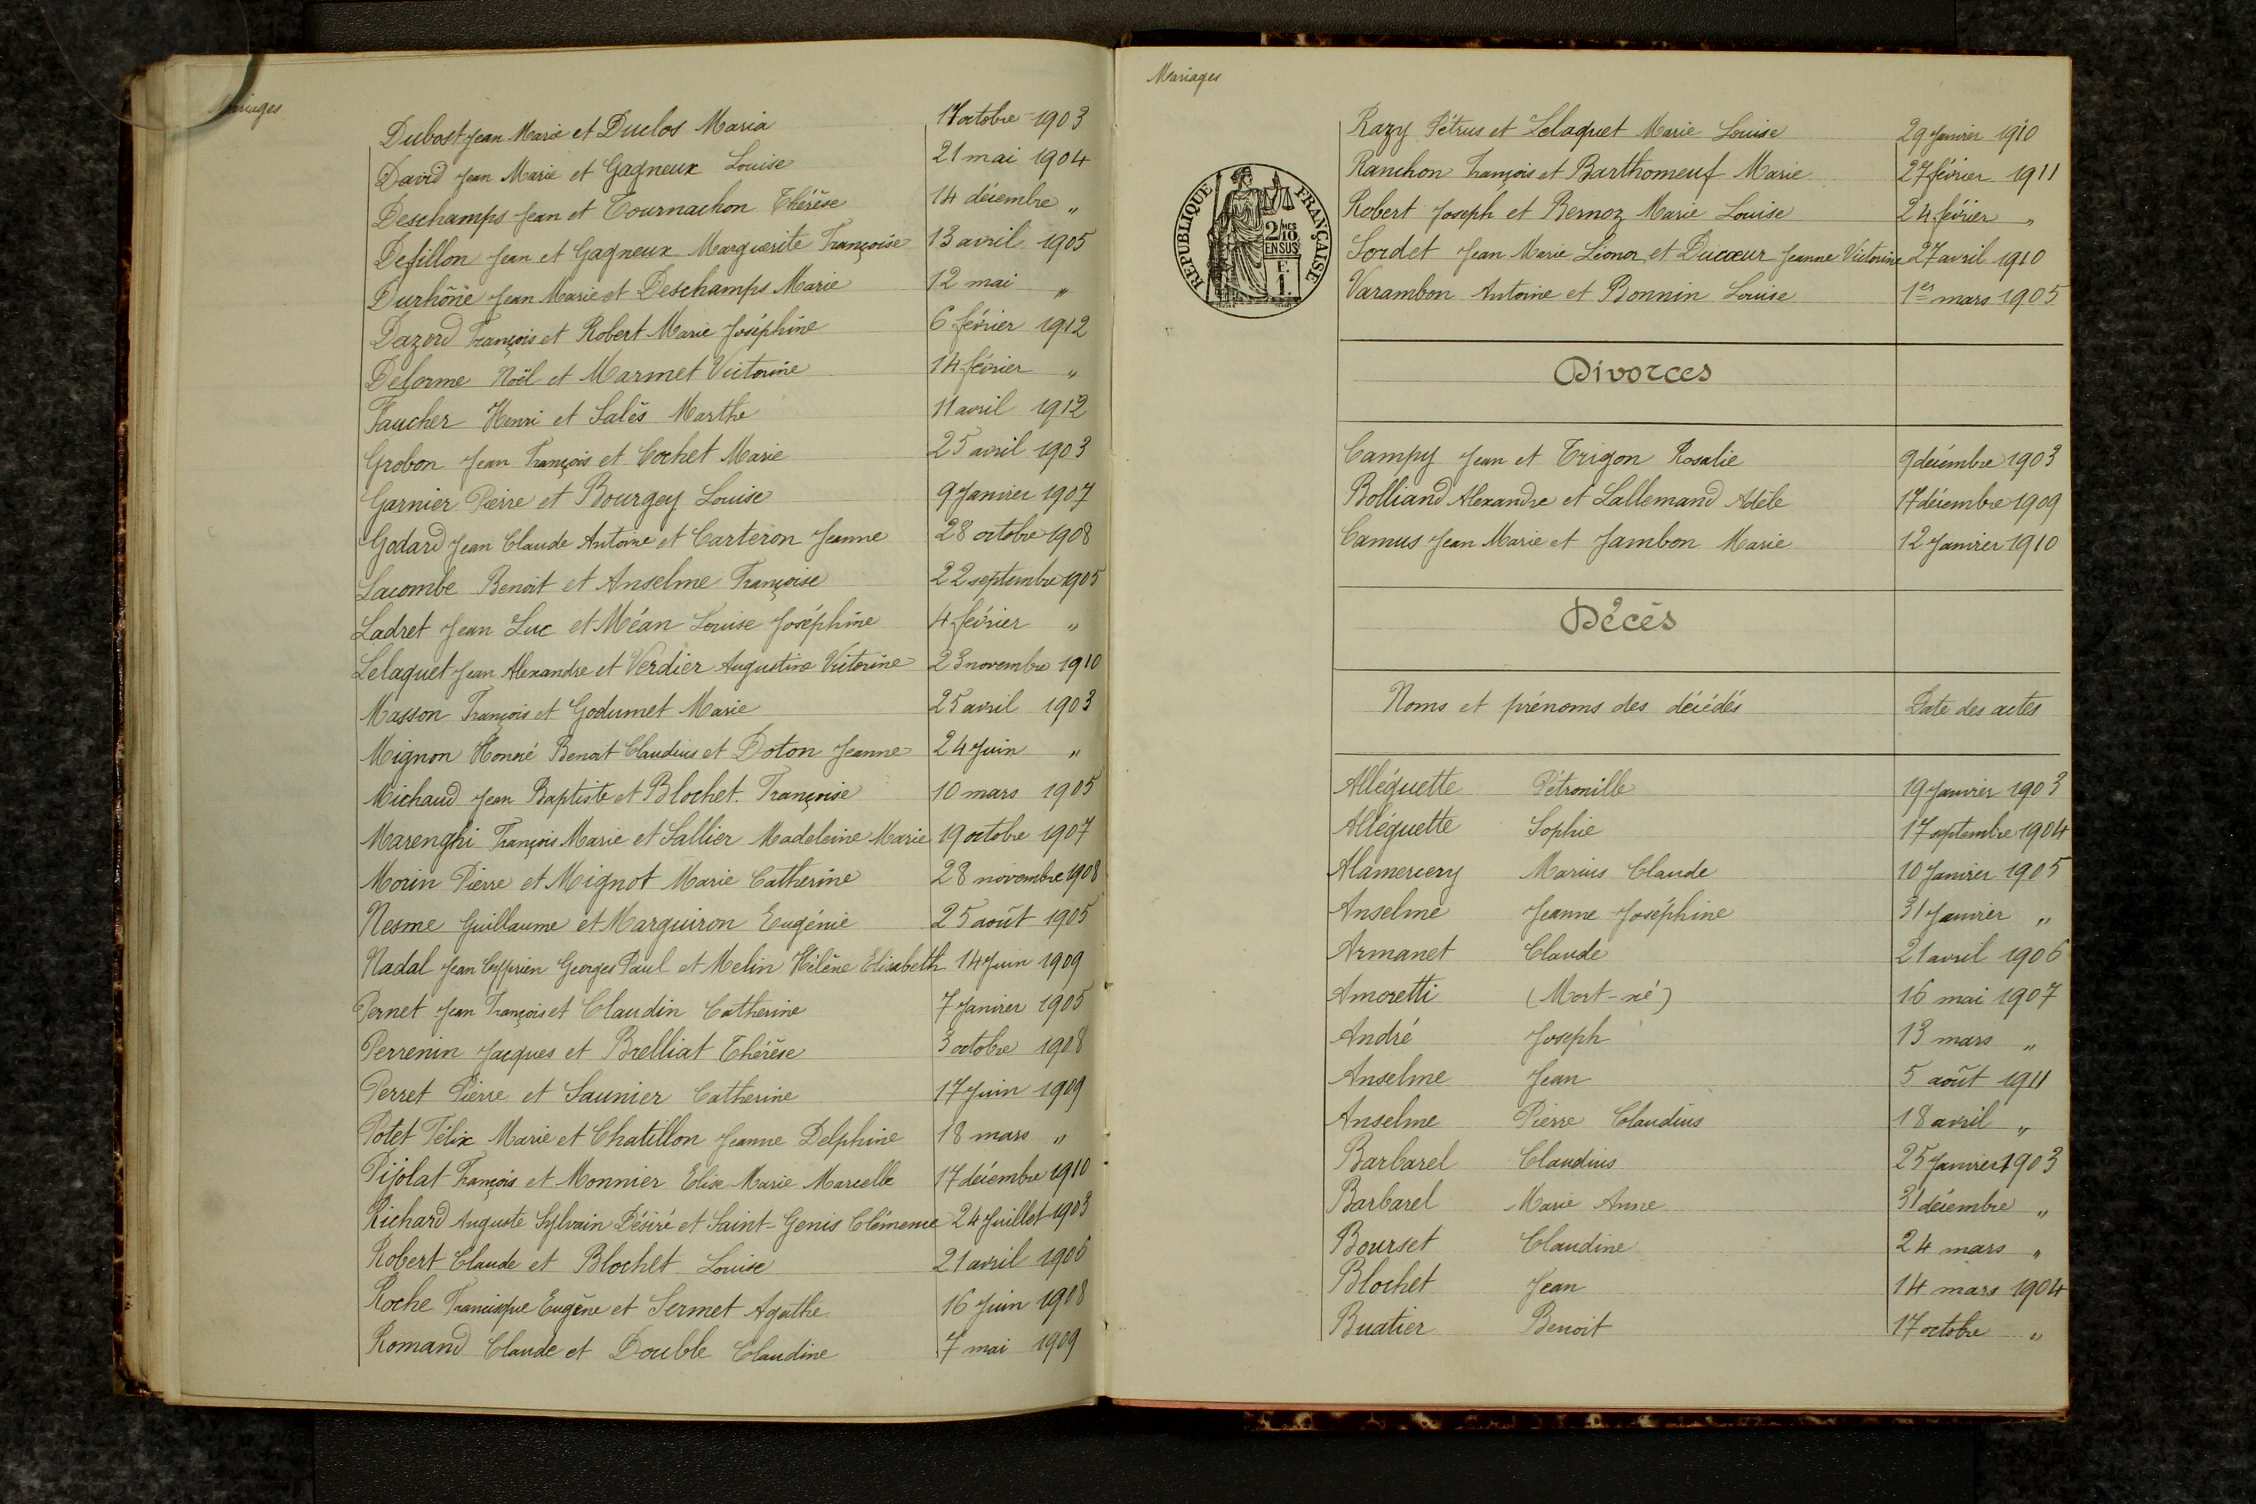 Mariages
Dubost Jean Marie et Duclos Maria 17 octobre 1903
David Jean Marie et Gagneux Louise 21 mai 1904
Deschamps Jean et Tournachon Thérèse 14 décembre "
Defillon Jean et Gagneux Marguerite Françoise 13 avril 1905
Durhône Jean Marie et Deschamps Marie 12 mai "
Dazord François et Robert Marie Joséphine 6 février 1912
Delorme Noël et Marmet Victorine 14 février "
Faucher Henri et Salès Marthe 11 avril 1912
Grobon Jean François et Cochet Marie 25 avril 1903
Garnier Pierre et Bourgey Louise 9 Janvier 1907
Godard Jean Claude Antoine et Carteron Jeanne 28 octobre 1908
Lacombe Benoit et Anselme Françoise 22 septembre 1905
Ladret Jean Luc et Méan Louise Joséphine 4 février "
Lelaquet Jean Alexandre et Verdier Augustine Victorine 23 novembre 1910
Masson François et Godumet Marie 25 avril 1903
Mignon Honoré Benoit Claudius et Doton Jeanne 24 Juin "
Michaud Jean Baptiste et Blochet Françoise 10 mars 1905
Marenghi François Marie et Sallier Madeleine Marie 19 octobre 1907
Morin Pierre et Mignot Marie Catherine 28 novembre 1908
Nesme Guillaume et Marguiron Eugénie 25 août 1905
Nadal Jean Cyprien Georges Paul et Melin Hélène Elisabeth 14 Juin 1909
Pernet Jean François et Claudin Catherine 7 Janvier 1905
Perrenin Jacques et Brelliat Thérèse 3 octobre 1908
Perret Pierre et Saunier Catherine 17 Juin 1909
Potet Félix Marie et Chatillon Jeanne Delphine 18 mars "
Pijolat François et Monnier Elise Marie Marcelle 17 décembre 1910
Richard Auguste Sylvain Désiré et Saint-Genis Clémence 24 Juillet 1903
Robert Claude et Blochet Louise 21 avril 1906
Roche Francisque Eugène et Sermet Agathe 16 Juin 1908
Romand Claude et Double Claudine 7 mai 1909
Mariages
REPUBLIQUE FRANÇAISE
2 MES
10
EN SUS
F.
1.
Razy Pétrus et Lelaquet Marie Louise 29 Janvier 1910
Ranchon François et Barthomeuf Marie 27 février 1911
Robert Joseph et Bernoz Marie Louise 24 février "
Sordet Jean Marie Léonor et Ducœur Jeanne Victorine 27 avril 1910
Varambon Antoine et Bonnin Louise 1er mars 1905
Divorces
Campy Jean et Trigon Rosalie 9 décembre 1903
Bolliand Alexandre et Lallemand Adèle 17 décembre 1909
Camus Jean Marie et Jambon Marie 12 Janvier 1910
Décès
Noms et prénoms des décédés Date des actes
Alléguette Pétronille 19 Janvier 1903
Alléguette Sophie 17 septembre 1904
Alamercery Marius Claude 10 Janvier 1905
Anselme Jeanne Joséphine 31 Janvier "
Armanet Claude 21 avril 1906
Amoretti (Mort-né) 16 mai 1907
André Joseph 13 mars "
Anselme Jean 5 août 1911
Anselme Pierre Claudius 18 avril "
Barbarel Claudius 25 Janvier 1903
Barbarel Marie Anne 31 décembre "
Bourset Claudine 24 mars "
Blochet Jean 14 mars 1904
Buatier Benoit 17 octobre "